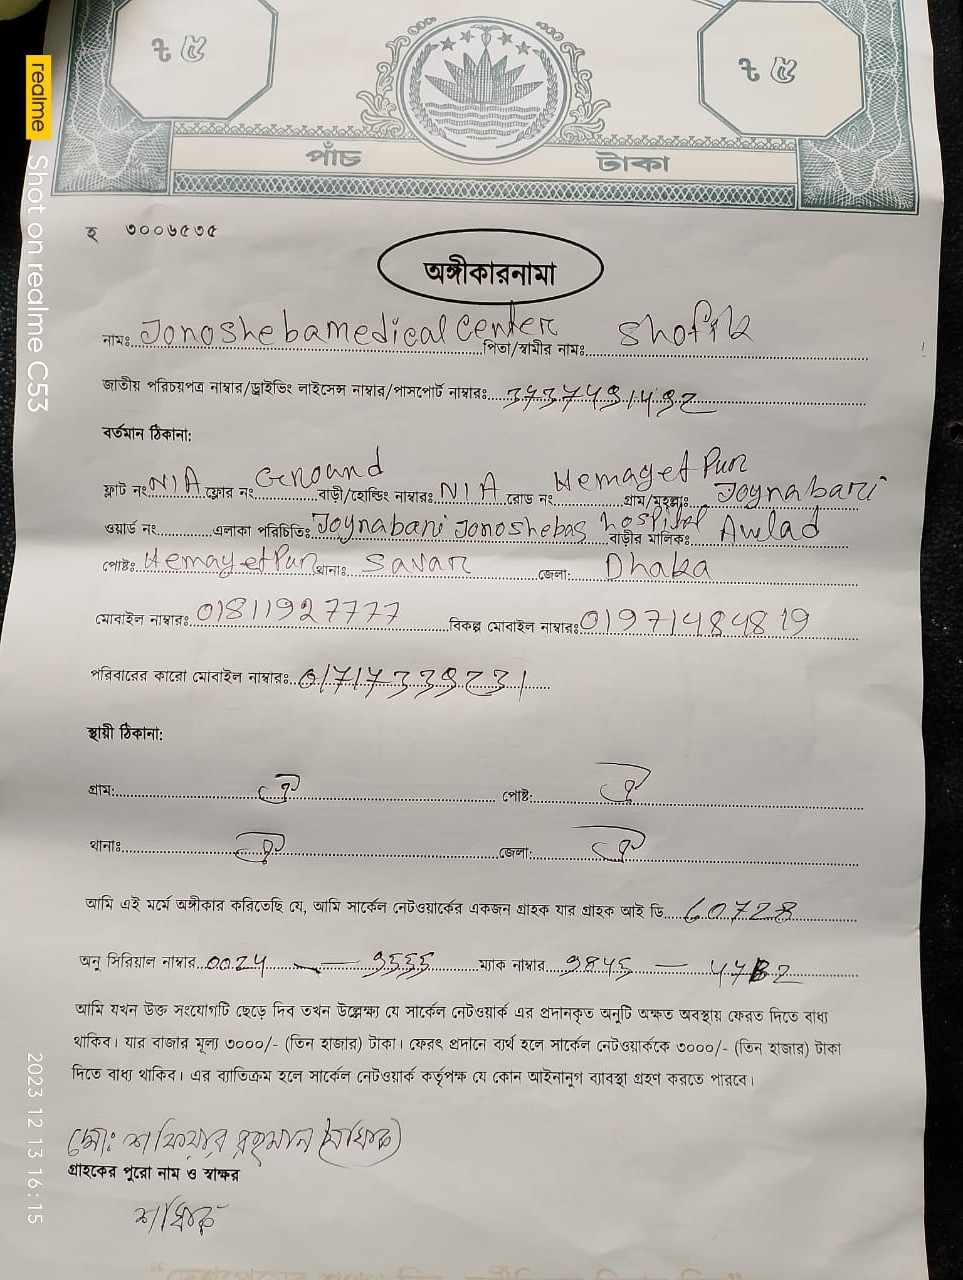 ৳ ৫
৳ ৫
পাঁচ টাকা
হ ৩০০৬৫৩৫
অঙ্গীকারনামা
নামঃ Jonosheba medical Center পিতা/স্বামীর নামঃ Shofik
জাতীয় পরিচয়পত্র নাম্বার/ড্রাইভিং লাইসেন্স নাম্বার/পাসপোর্ট নাম্বারঃ
বর্তমান ঠিকানা:
ফ্লাট নং N/A ফ্লোর নং Ground বাড়ী/হোল্ডিং নাম্বারঃ N/A রোড নং Hemayet Pur গ্রাম/মহল্লাঃ Joynabari
ওয়ার্ড নং এলাকা পরিচিতিঃ Joynabari Jonosheba hospital বাড়ীর মালিকঃ Awlad
পোষ্টঃ Hemayet Pur থানাঃ Savar জেলা: Dhaka
মোবাইল নাম্বারঃ 01811927777 বিকল্প মোবাইল নাম্বারঃ 01971484819
পরিবারের কারো মোবাইল নাম্বারঃ
স্থায়ী ঠিকানা:
গ্রাম: পোষ্ট:
থানাঃ জেলা:
আমি এই মর্মে অঙ্গীকার করিতেছি যে, আমি সার্কেল নেটওয়ার্কের একজন গ্রাহক যার গ্রাহক আই ডি 60728
অনু সিরিয়াল নাম্বার 0024 — 9555 ম্যাক নাম্বার 9845 —
আমি যখন উক্ত সংযোগটি ছেড়ে দিব তখন উল্লেক্ষ্য যে সার্কেল নেটওয়ার্ক এর প্রদানকৃত অনুটি অক্ষত অবস্থায় ফেরত দিতে বাধ্য
থাকিব। যার বাজার মূল্য ৩০০০/- (তিন হাজার) টাকা। ফেরৎ প্রদানে ব্যর্থ হলে সার্কেল নেটওয়ার্ককে ৩০০০/- (তিন হাজার) টাকা
দিতে বাধ্য থাকিব। এর ব্যতিক্রম হলে সার্কেল নেটওয়ার্ক কর্তৃপক্ষ যে কোন আইনানুগ ব্যাবস্থা গ্রহণ করতে পারবে।
মোঃ শফিকুর রহমান (শফিক)
গ্রাহকের পুরো নাম ও স্বাক্ষর
শফিক
realme Shot on realme C53
2023 12 13 16:15